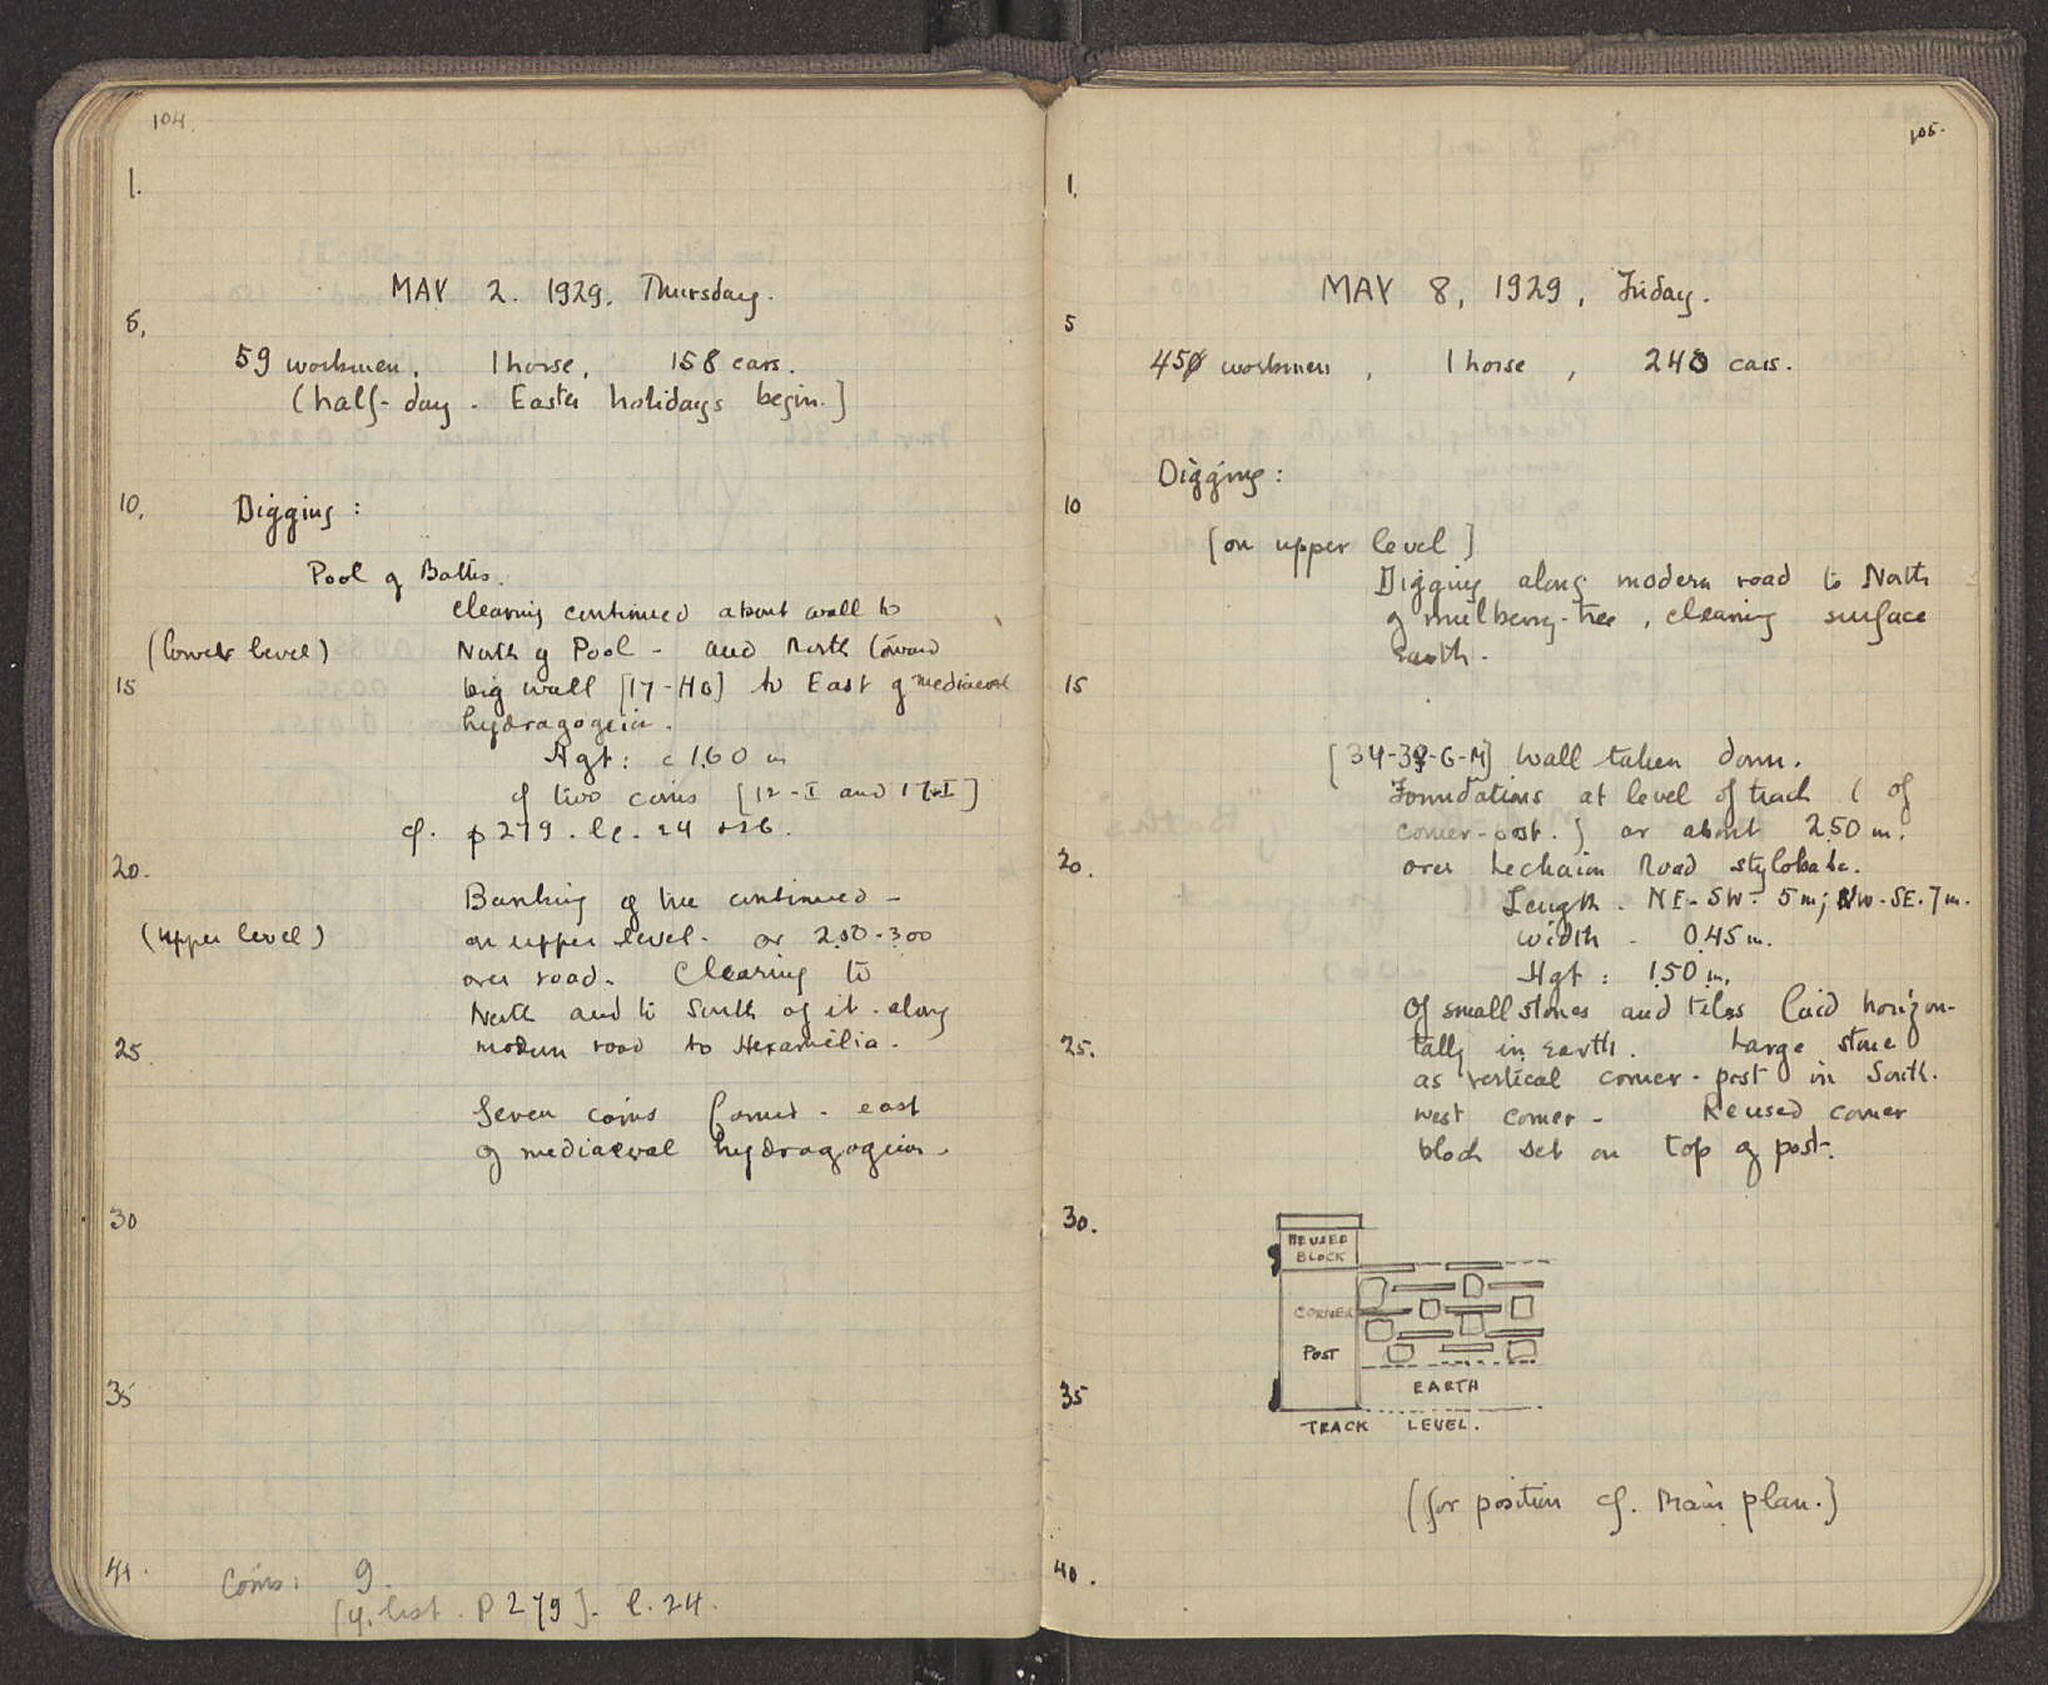 104.
1.
MAY 2. 1929. Thursday.
5.
59 workmen, 1 horse, 158 cars.
(half-day. Easter holidays begin.]
10.
Digging:
Pool of Baths.
clearing continued about wall to
(lower level) North of Pool - and North toward
15 big wall [17-HO] to East of mediaeval
hydragogeion.
Hgt: c 1.60 m
of two coins [12-I and 17-I]
cf. p 279. ll. 24 +26.
20.
Banking of tree continued -
(upper level) on upper level. or 2.50-3.00
over road. Clearing to
North and to South of it. along
25. modern road to Hexamilia.
Seven coins found - east
of mediaeval hydragogeion.
30
35
41. Coins: 9.
[cf. list. p 279]. l. 24.
105.
1.
MAY 8, 1929, Friday.
5
450 workmen, 1 horse, 240 cars.
Digging:
10
[on upper level]
Digging along modern road to North
of mulberry-tree, clearing surface
earth.
15
[34-38-G-M] Wall taken down.
Foundations at level of track (of
corner-post.) or about 2.50 m.
20. over Lechaion Road stylobate.
Length. NE-SW. 5 m; NW-SE. 7 m.
Width - 0.45 m.
Hgt: 1.50 m.
Of small stones and tiles laid horizon-
25. tally in earth. Large stone
as vertical corner-post in South-
west corner - Reused corner
block set on top of post.
30.
REUSED
BLOCK
CORNER
POST
35 EARTH
TRACK LEVEL.
(for position cf. Main plan.)
40.